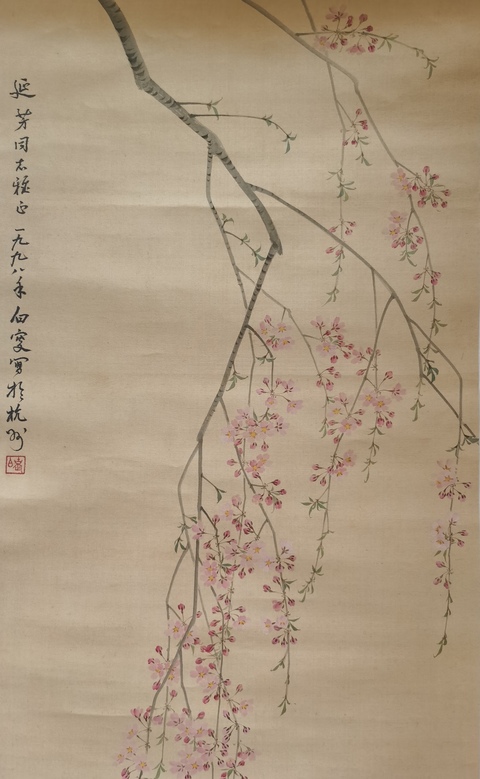 延芳同志雅正一九九八年向叟写於杭州